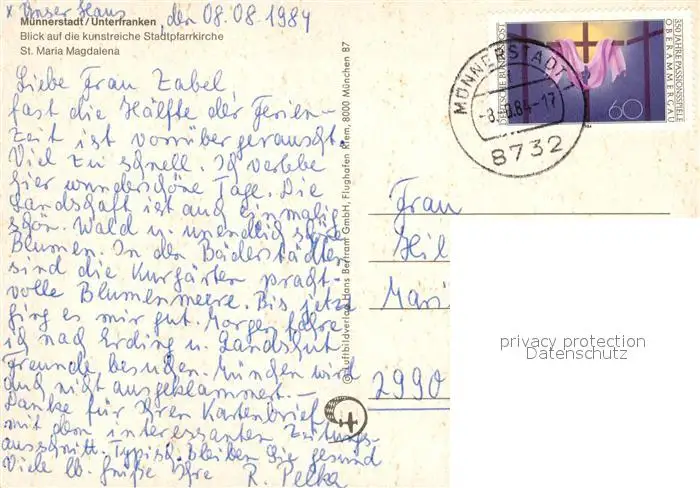 x Unser Haus
, den 08.08.1984
Münnerstadt/Unterfranken
Blick auf die kunstreiche Stadtpfarrkirche
St. Maria Magdalena
Liebe Frau Zabel,
fast die Hälfte der Ferien-
zeit ist vorrüber gerauscht.
Viel zu schnell. Ich verlebe
hier wunderschöne Tage. Die
Landschaft ist auch einmalig
schön. Wald u. unendlich schöne
Blumen. In den Bäderstädten
sind die Kurgärten pracht-
volle Blumenmeere. Bis jetzt
ging es mir gut. Morgen fahre
ich nach Erding u. Landshut
Freunde besuchen. München wird
auch nicht ausgeklammert. –
Danke für Ihren Kartenbrief
mit dem interessanten Zeitungs-
ausschnitt. Typisch. Bleiben Sie gesund
Viele lb. Grüße Ihre R. Pelka
© Luftbildverlag Hans Bertram GmbH, Flughafen Riem, 8000 München 87
MÜNNERSTADT
-8.-8.84-17
8732
DEUTSCHE BUNDESPOST
350 JAHRE PASSIONSSPIELE
OBERAMMERGAU
60
Frau
Hil
Mari
2990
privacy protection
Datenschutz